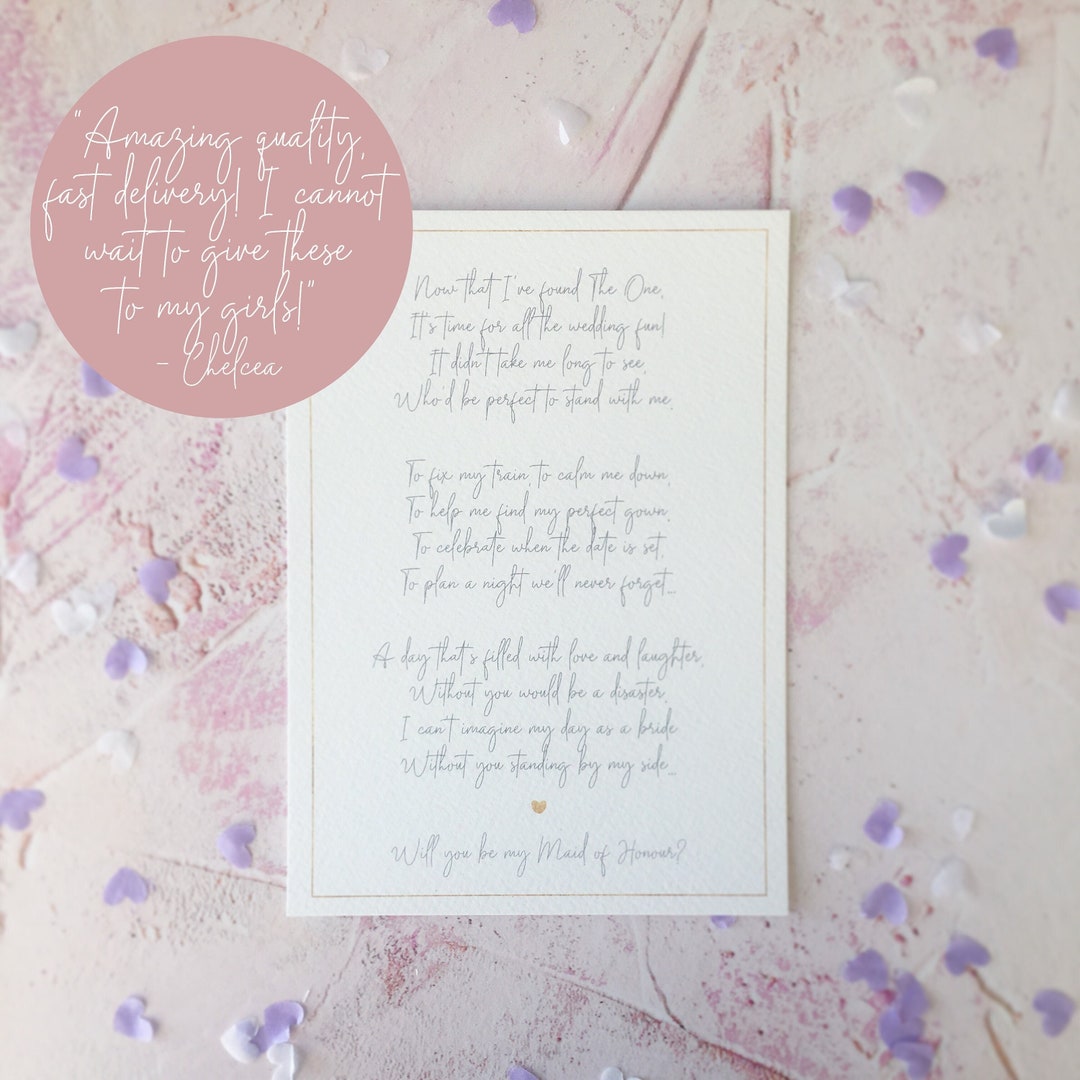 "Amazing quality,
fast delivery! I cannot
wait to give these
to my girls!"
- Chelcea
Now that I've found The One,
It's time for all the wedding fun!
It didn't take me long to see,
Who'd be perfect to stand with me.
To fix my train, to calm me down,
To help me find my perfect gown.
To celebrate when the date is set,
To plan a night we'll never forget...
A day that's filled with love and laughter,
Without you would be a disaster.
I can't imagine my day as a bride
Without you standing by my side...
Will you be my Maid of Honour?